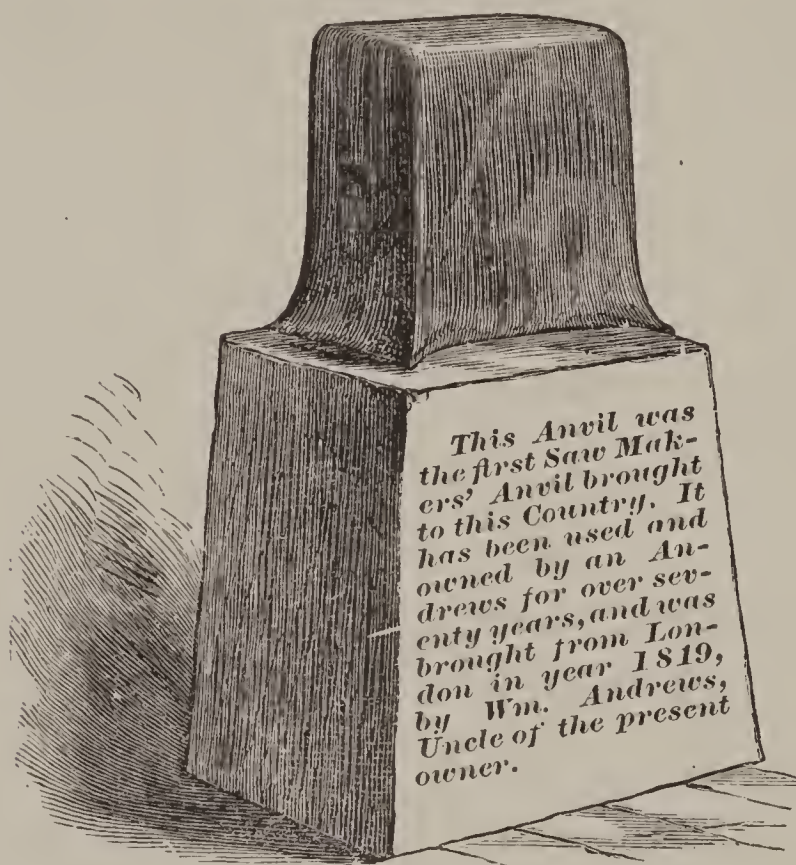 This Anvil was
the first Saw Mak-
ers' Anvil brought
to this Country. It
has been used and
owned by an An-
drews for over sev-
enty years, and was
brought from Lon-
don in year 1819,
by Wm. Andrews,
Uncle of the present
owner.